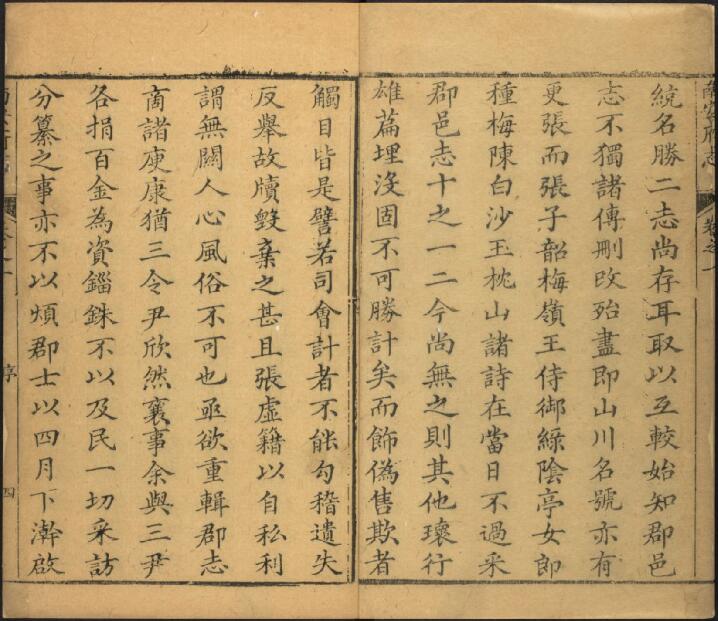 統名勝二志尚存耳取以互較始知郡邑
志不獨諸傳刪改殆盡即山川名號亦有
更張而張子韶梅嶺王侍御綠陰亭女郎
種梅陳白沙玉枕山諸詩在當日不過采
郡邑志十之一二今尚無之則其他瓌行
雄篇埋沒固不可勝計矣而飾偽售欺者
觸目皆是譬若司會計者不能勾稽遺失
反舉故牘毀棄之甚且張虛籍以自私利
謂無關人心風俗不可也亟欲重輯郡志
商諸庾康猶三令尹欣然襄事余與三尹
各捐百金為資錙銖不以及民一切采訪
分纂之事亦不以煩郡士以四月下澣啟
南安府志
卷之一
序
四